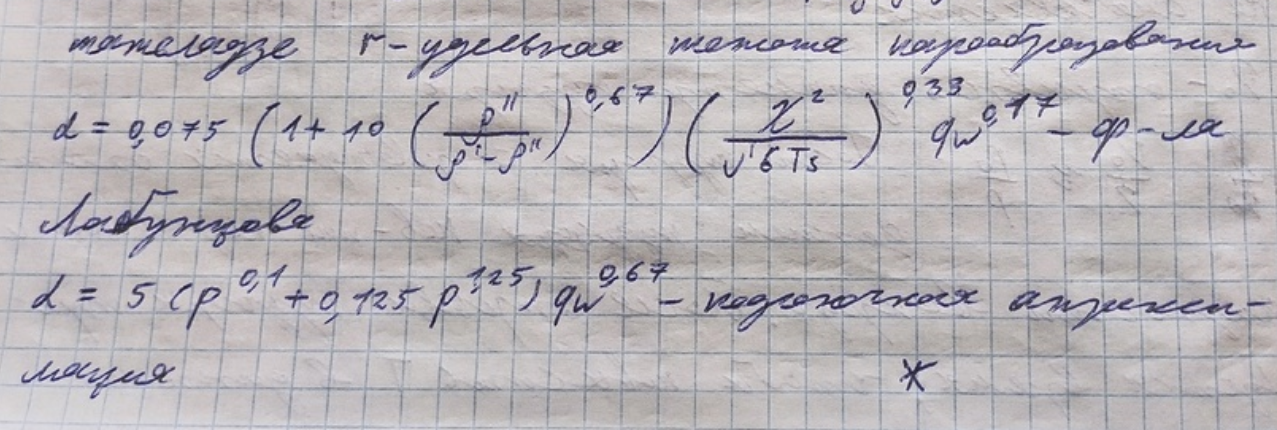 тателадзе r - удельная теплота парообразования
α = 0,075 (1 + 10 (ρ'' / (ρ' - ρ''))^0,67) (λ² / (ν'σTs))^0,33 qw^0,77 - ф-ла
Лабунцова
α = 5 (p^0,1 + 0,125 p^1,25) qw^0,67 - подгоночная аппрокси-
мация *